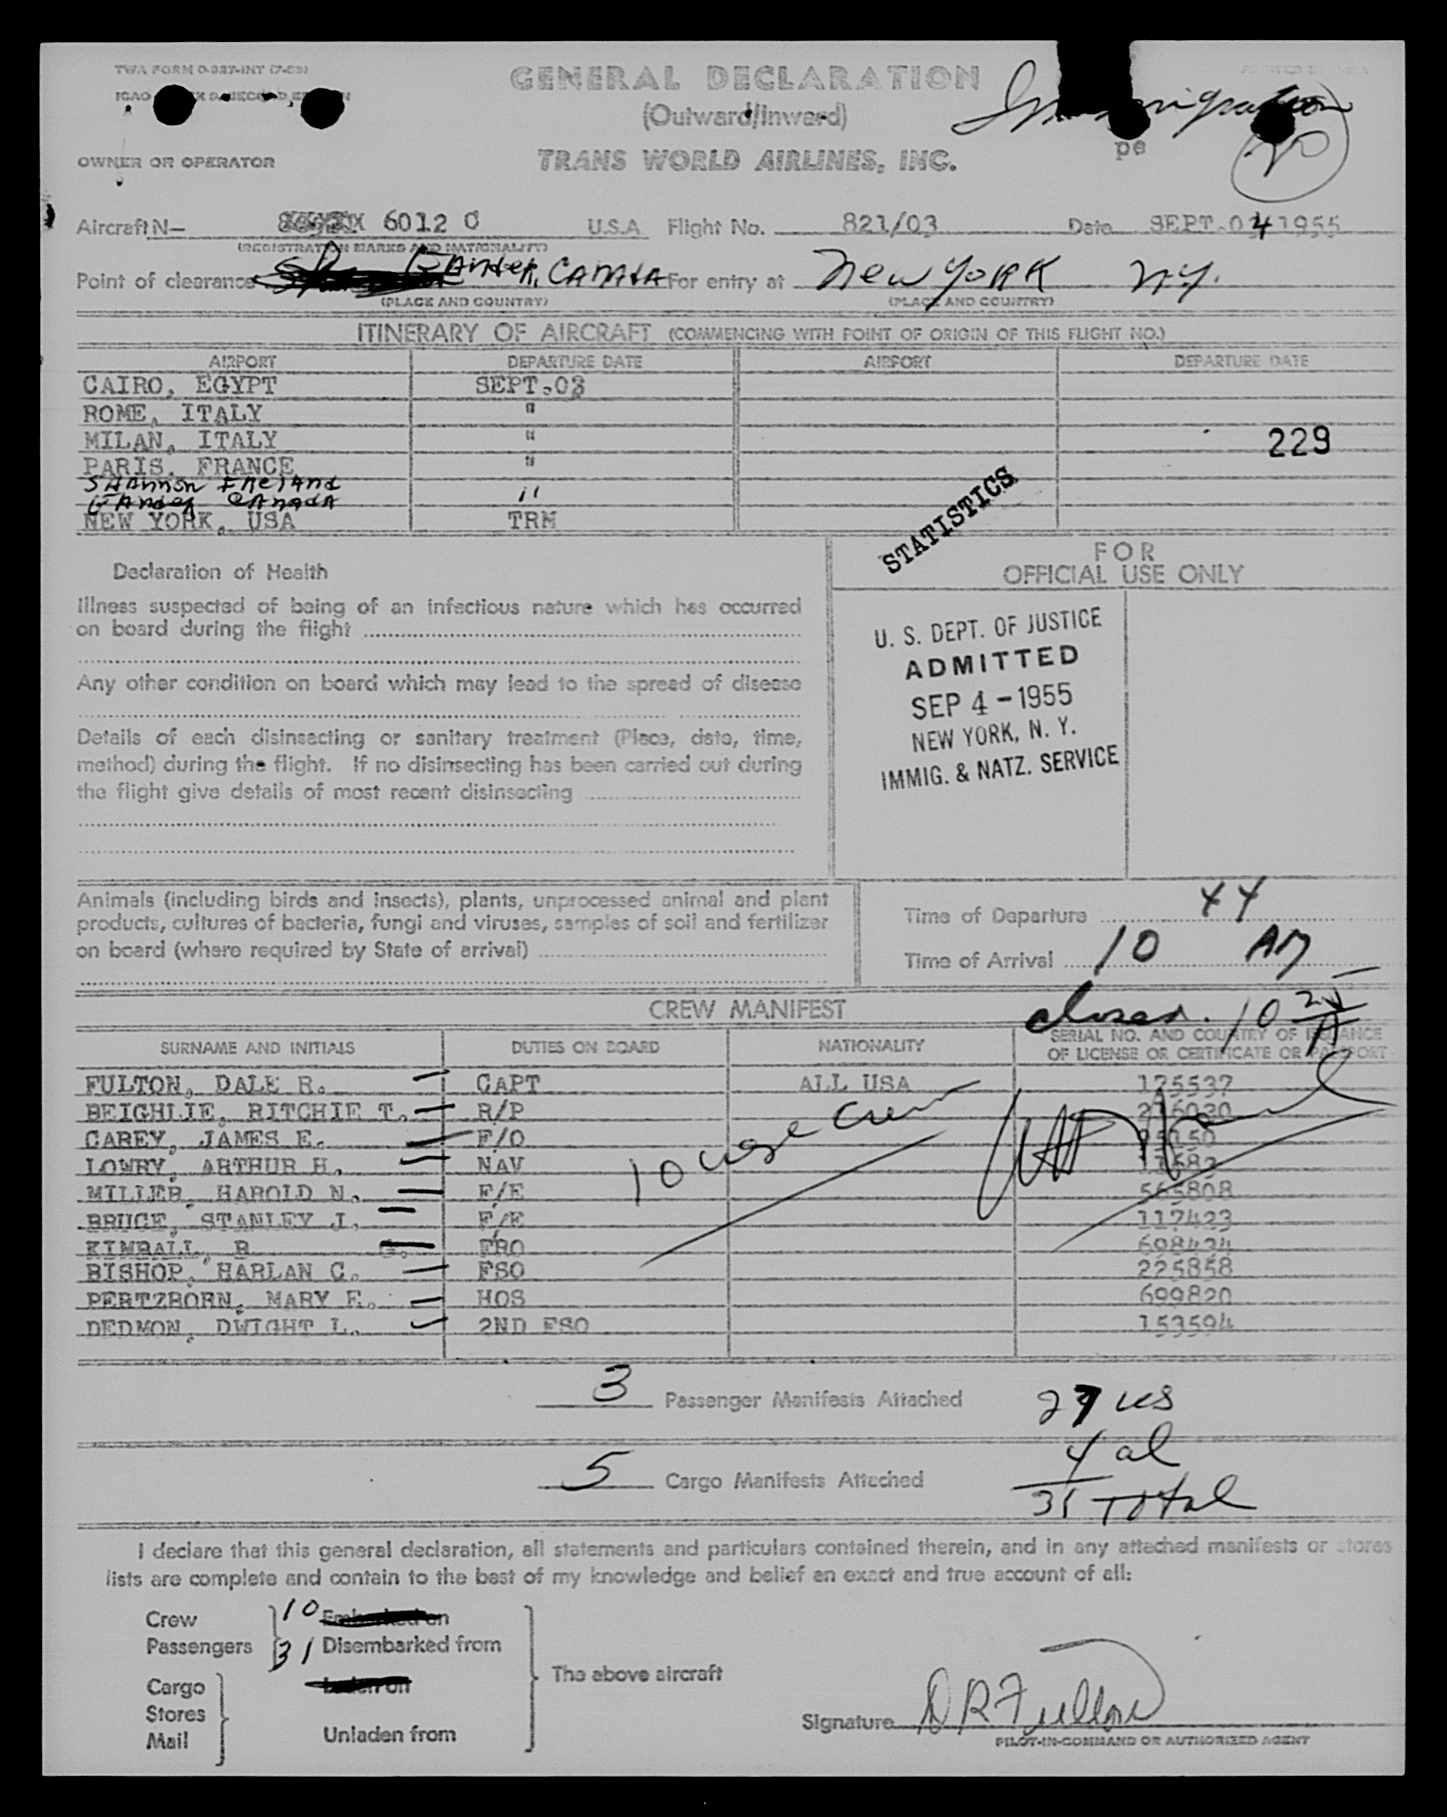 TWA FORM O-327-INT
ICAO
GENERAL DECLARATION
(Outward/Inward)
Immigration
OWNER OR OPERATOR
TRANS WORLD AIRLINES, INC.
pe
Aircraft N— 6012 C U.S.A. Flight No. 821/03 Date SEPT. 04 1955
(REGISTRATION MARKS AND NATIONALITY)
Point of clearance GANDER, CANADA For entry at New York N.Y.
(PLACE AND COUNTRY) (PLACE AND COUNTRY)
ITINERARY OF AIRCRAFT (COMMENCING WITH POINT OF ORIGIN OF THIS FLIGHT NO.)
AIRPORT DEPARTURE DATE AIRPORT DEPARTURE DATE
CAIRO, EGYPT SEPT.03
ROME, ITALY "
MILAN, ITALY " 229
PARIS, FRANCE "
SHANNON IRELAND
GANDER CANADA "
NEW YORK, USA TRM
STATISTICS
Declaration of Health
FOR
OFFICIAL USE ONLY
Illness suspected of being of an infectious nature which has occurred
on board during the flight
Any other condition on board which may lead to the spread of disease
Details of each disinsecting or sanitary treatment (Place, date, time,
method) during the flight. If no disinsecting has been carried out during
the flight give details of most recent disinsecting
U. S. DEPT. OF JUSTICE
ADMITTED
SEP 4 - 1955
NEW YORK, N. Y.
IMMIG. & NATZ. SERVICE
Animals (including birds and insects), plants, unprocessed animal and plant
products, cultures of bacteria, fungi and viruses, samples of soil and fertilizer
on board (where required by State of arrival)
Time of Departure 44
Time of Arrival 10 AM
CREW MANIFEST closed. 10
SURNAME AND INITIALS DUTIES ON BOARD NATIONALITY SERIAL NO. AND COUNTRY OF ISSUANCE
OF LICENSE OR CERTIFICATE OR PASSPORT
FULTON, DALE R. CAPT ALL USA 175537
BEIGHLIE, RITCHIE T. R/P
CAREY, JAMES E. F/O
LOWRY, ARTHUR H. NAV
MILLER, HAROLD N. F/E 565808
BRUCE, STANLEY J. F/E 117423
KIMBALL, B G. FRO 698434
BISHOP, HARLAN C. FSO 225858
PERTZBORN, MARY E. HOS 699820
DEDMON, DWIGHT L. 2ND FSO 153594
10 usge crew
3 Passenger Manifests Attached 27 US
4 al
5 Cargo Manifests Attached
31 Total
I declare that this general declaration, all statements and particulars contained therein, and in any attached manifests or stores
lists are complete and contain to the best of my knowledge and belief an exact and true account of all:
Crew 10 Embarked on
Passengers 31 Disembarked from
The above aircraft
Cargo Laden on
Stores
Mail Unladen from
Signature D R Fulton
PILOT-IN-COMMAND OR AUTHORIZED AGENT